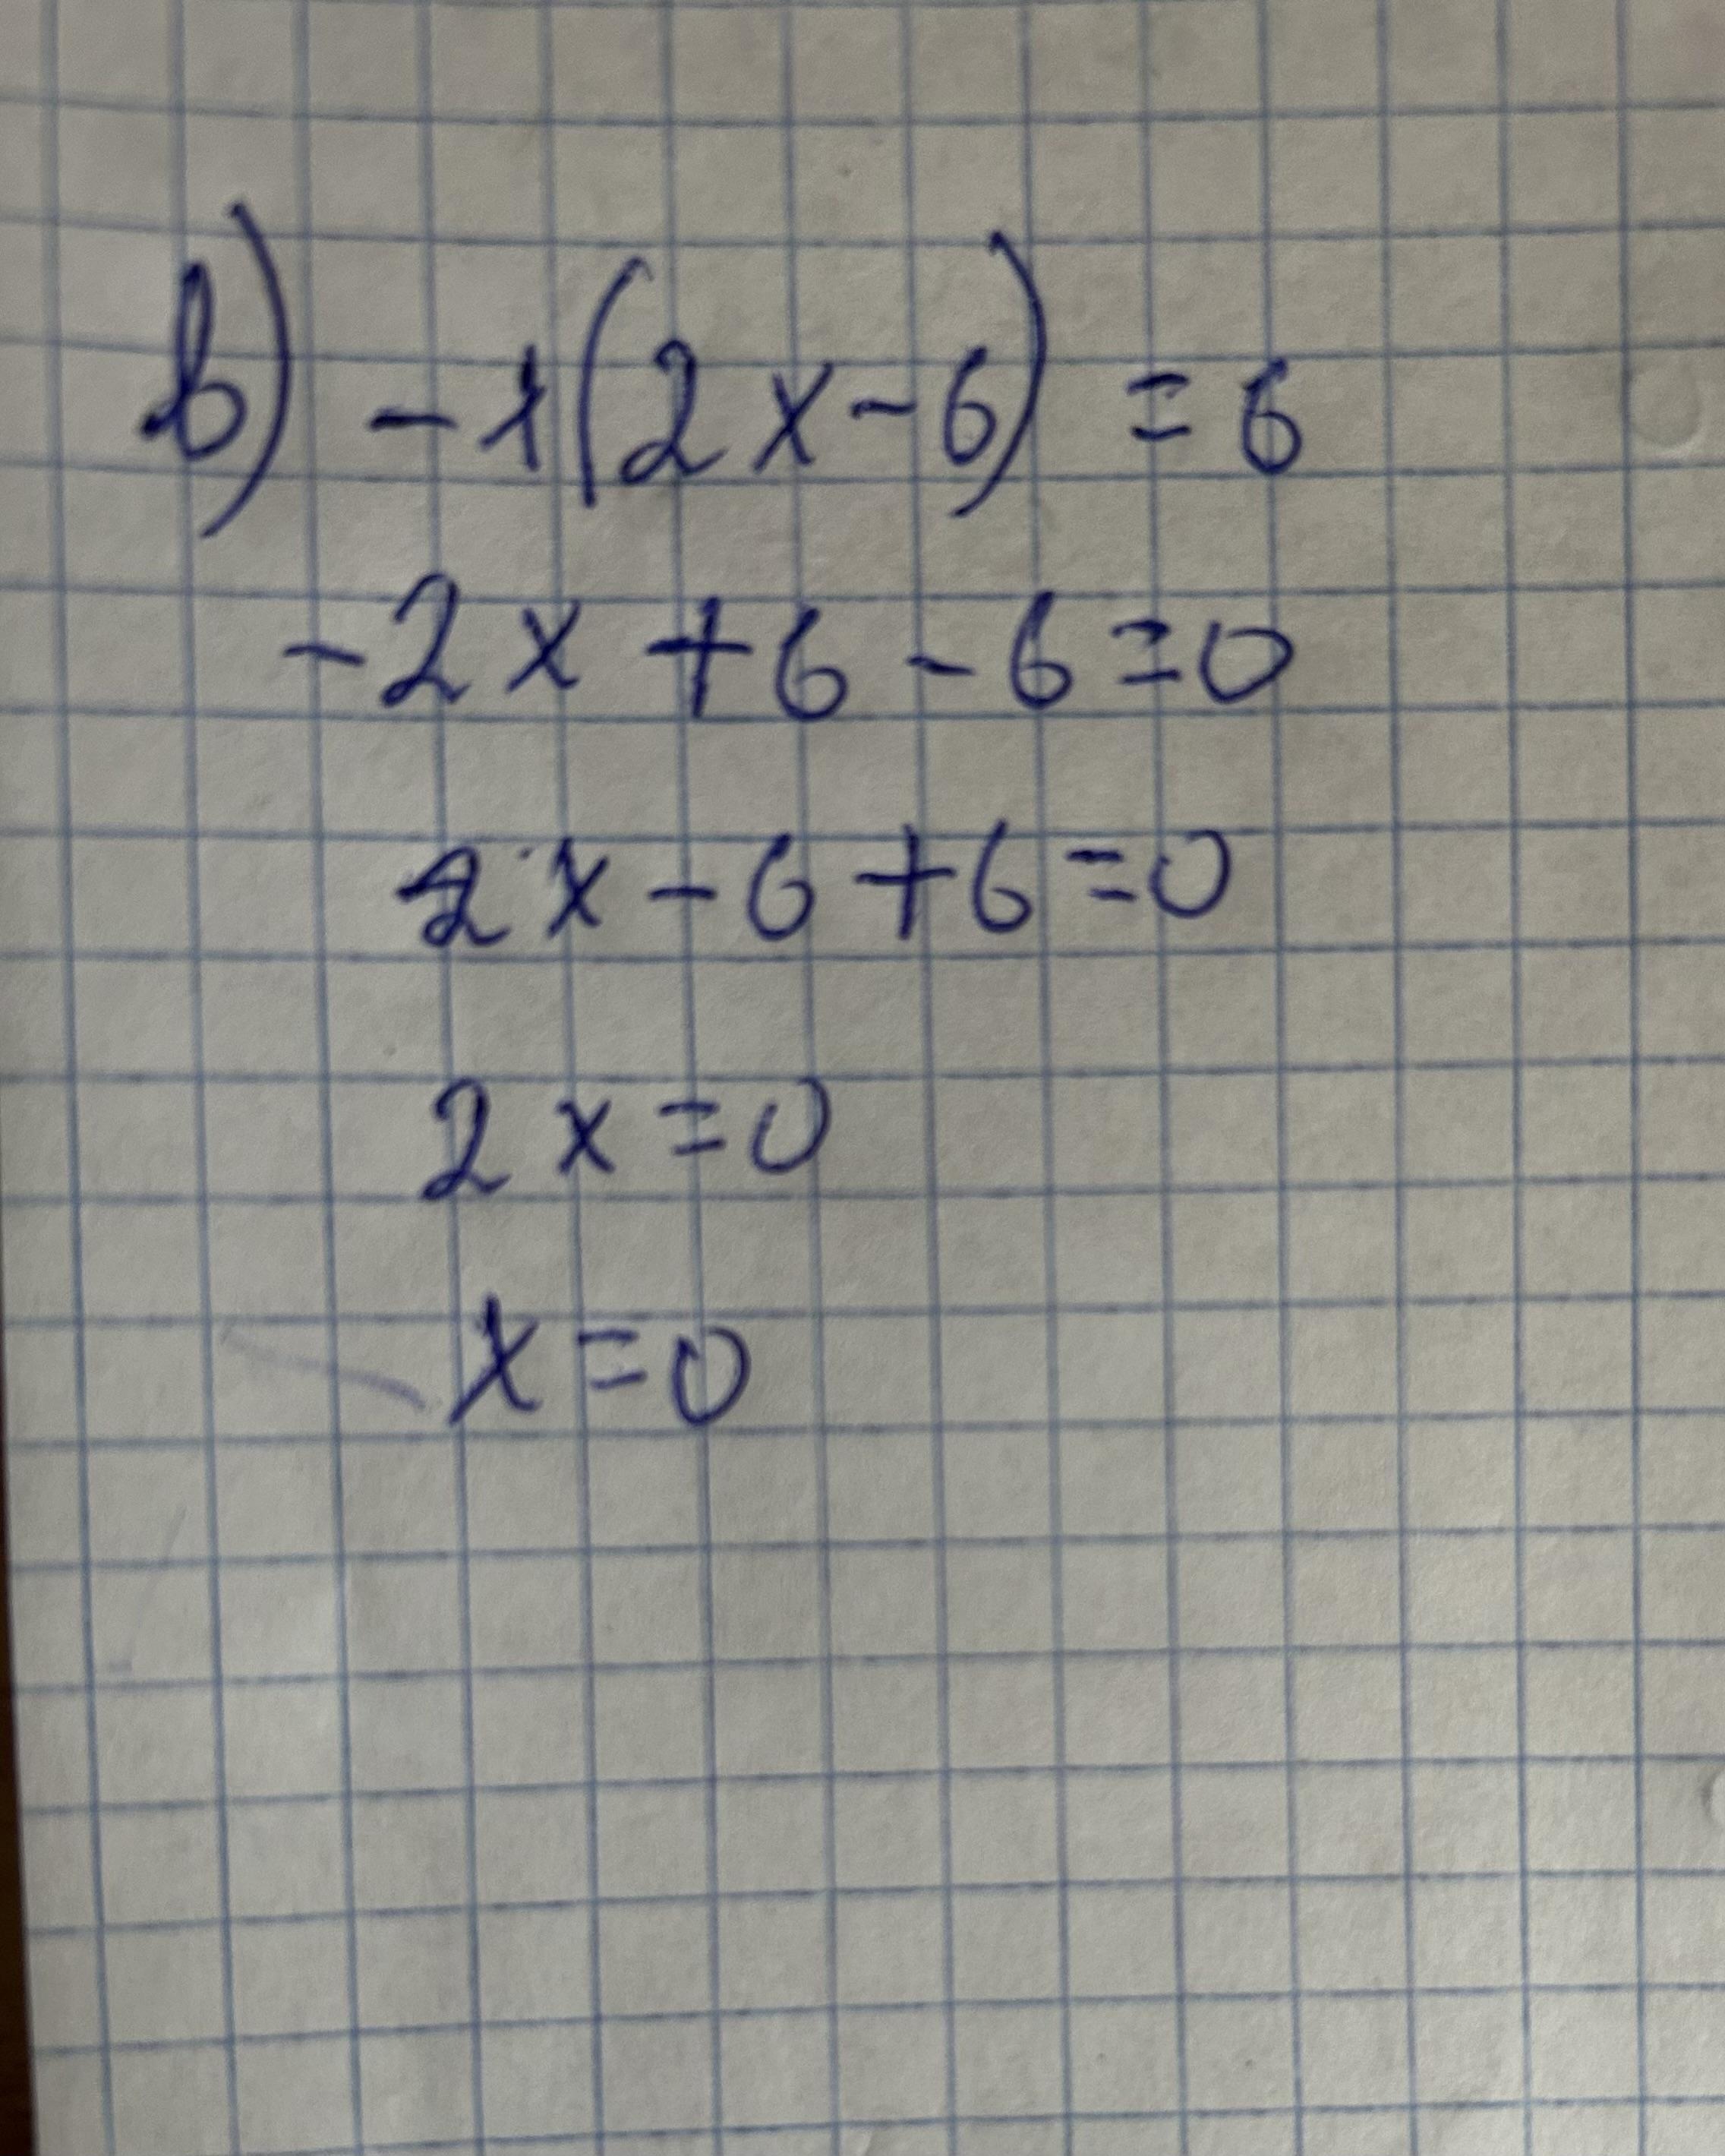 b) -1(2x-6) = 6
-2x+6-6=0
2x-6+6=0
2x=0
x=0